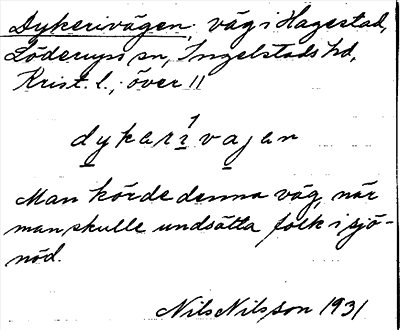 Dykerivägen, väg i Hagestad,
Löderups sn, Ingelstads hd,
Krist. l., över 11
dykarivajan
Man körde denna väg, när
man skulle undsätta folk i sjö-
nöd.
Nils Nilsson 1931